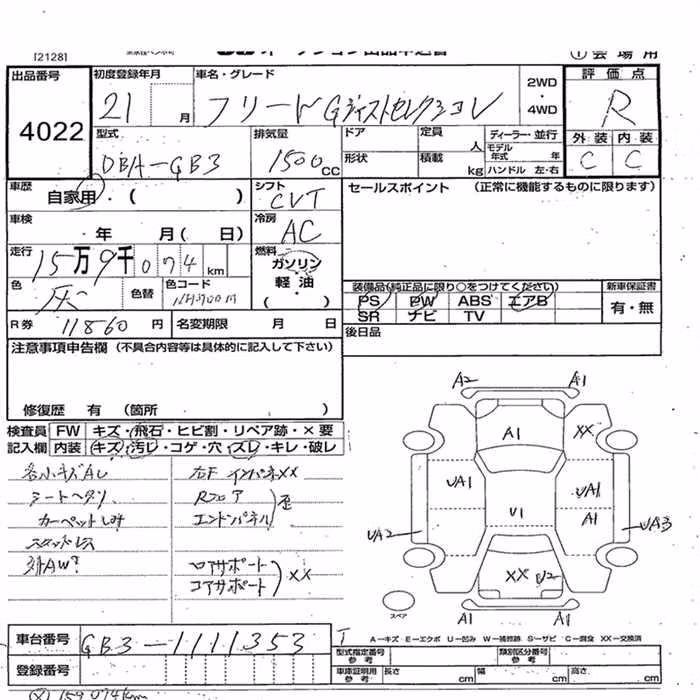 [2128]
① 会場用
出品番号 初度登録年月 車名・グレード 2WD・4WD 評価点
4022 21 月 フリード Gジャストセレクション R
型式 排気量 ドア 定員 人 ディーラー・並行 外装 内装
DBA-GB3 1500cc 形状 積載 kg モデル年式 年 ハンドル 左・右 C C
車歴 自家用・( ) シフト CVT セールスポイント (正常に機能するものに限ります)
車検 年 月( 日) 冷房 AC
走行 15万9千074km 燃料 ガソリン 軽油 ( )
色 灰 色替 色コード 装備品(純正品に限り○をつけてください) 新車保証書
PS PW ABS エアB 有・無
SR ナビ TV
R券 11860円 名変期限 月 日 後日品
注意事項申告欄 (不具合内容等は具体的に記入して下さい)
修復歴 有 (箇所 )
検査員 FW キズ・飛石・ヒビ割・リペア跡・×要
記入欄 内装 キズ・汚レ・コゲ・穴・スレ・キレ・破レ
各小キズAU 右F インパネXX
シートヘタリ Rフロア 歪
カーペットしみ エンドパネル
スタッドレス
対AW? ロアサポート XX
コアサポート
A2 A1
A1 XX
UA1 UA1
U1 A1
UA2 UA3
XX U2
スペア A1 A1
A-キズ E-エクボ U-凹み W-補修跡 S-サビ C-腐食 XX-交換済
車台番号 GB3-1111353
型式指定番号 参考 類別区分番号 参考
登録番号 車庫証明用 参考 長さ cm 幅 cm 高さ cm
159074km